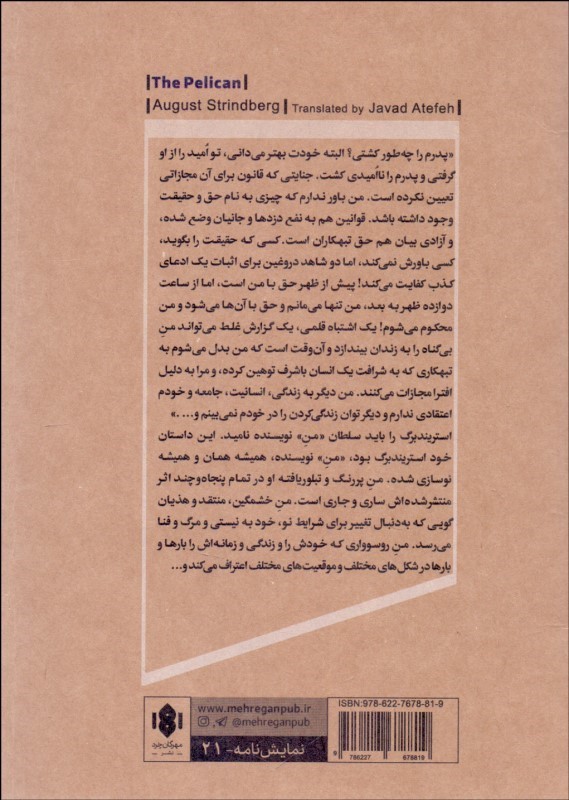 |The Pelican|
|August Strindberg| Translated by Javad Atefeh|
«پدرم را چه‌طور کشتی؟ البته خودت بهتر می‌دانی، تو اُمید را از او
گرفتی و پدرم را نااُمیدی کشت. جنایتی که قانون برای آن مجازاتی
تعیین نکرده است. من باور ندارم که چیزی به نام حق و حقیقت
وجود داشته باشد. قوانین هم به نفع دزدها و جانیان وضع شده،
و آزادی بیان هم حق تبهکاران است. کسی که حقیقت را بگوید،
کسی باورش نمی‌کند، اما دو شاهد دروغین برای اثبات یک ادعای
کذب کفایت می‌کند! پیش از ظهر حق با من است، اما از ساعت
دوازده ظهر به بعد، من تنها می‌مانم و حق با آن‌ها می‌شود و من
محکوم می‌شوم! یک اشتباه قلمی، یک گزارش غلط می‌تواند منِ
بی‌گناه را به زندان بیندازد و آن‌وقت است که من بدل می‌شوم به
تبهکاری که به شرافت یک انسان باشرف توهین کرده، و مرا به دلیل
افترا مجازات می‌کنند. من دیگر به زندگی، انسانیت، جامعه و خودم
اعتقادی ندارم و دیگر توان زندگی‌کردن را در خودم نمی‌بینم و... .»
استریندبرگ را باید سلطان «منِ» نویسنده نامید. این داستان
خود استریندبرگ بود، «منِ» نویسنده، همیشه همان و همیشه
نوسازی شده. منِ پررنگ و تبلوریافته او در تمام پنجاه‌وچند اثر
منتشرشده‌اش ساری و جاری است. منِ خشمگین، منتقد و هذیان
گویی که به‌دنبال تغییر برای شرایط نو، خود به نیستی و مرگ و فنا
می‌رسد. منِ روسوواری که خودش را و زندگی و زمانه‌اش را بارها و
بارها در شکل‌های مختلف و موقعیت‌های مختلف اعتراف می‌کند و...
مهرگان خرد
نشر
www.mehreganpub.ir
@mehreganpub
نمایش‌نامه - ۲۱
ISBN:978-622-7678-81-9
9 786227 678819